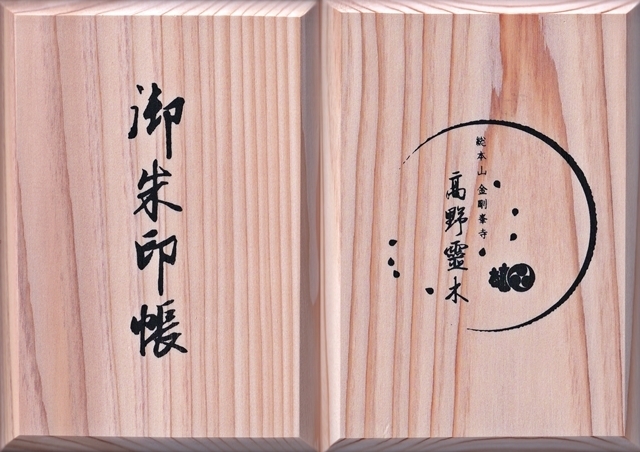 御朱印帳
総本山 金剛峯寺
高野霊木